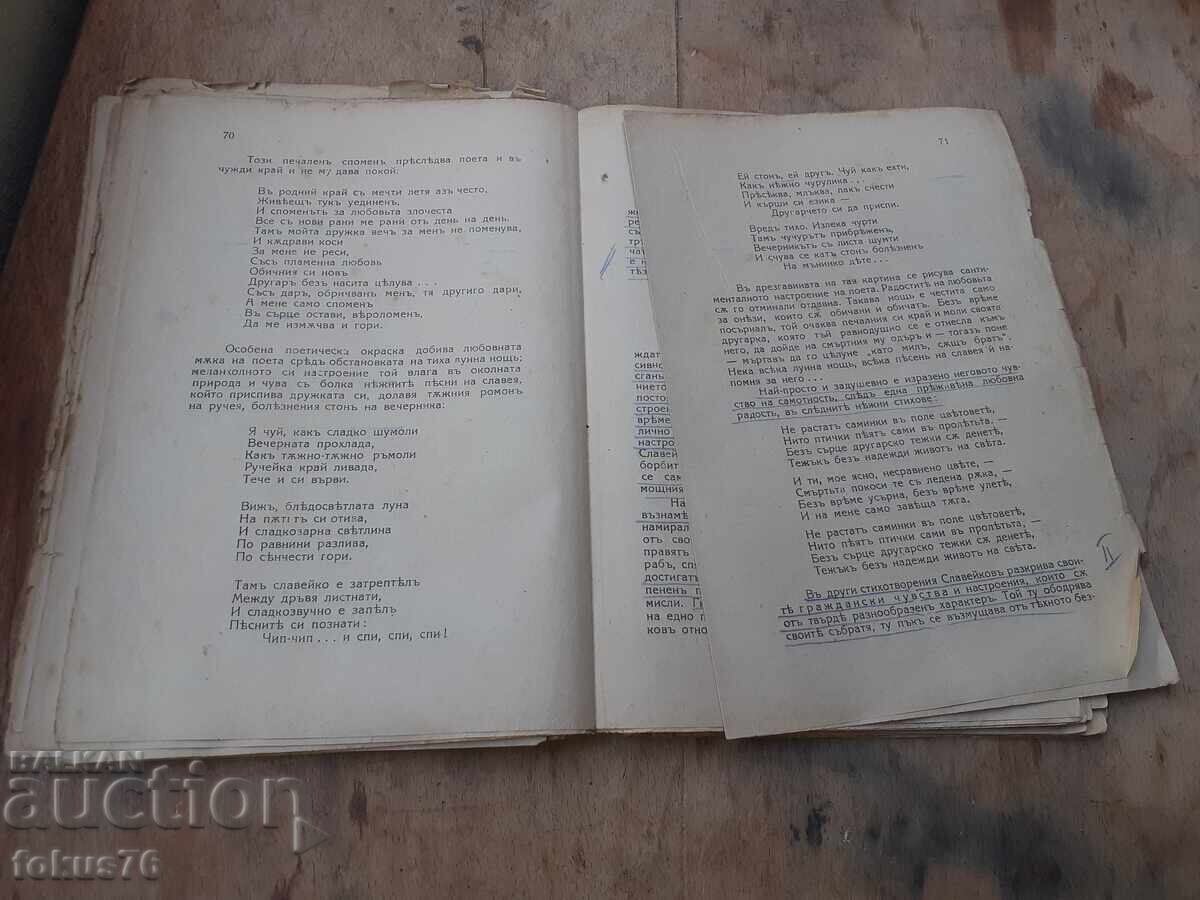 70
Този печаленъ споменъ прѣслѣдва поета и въ
чужди край и не му дава покой:
Въ родний край съ мечти летя азъ често,
Живѣещъ тукъ уединенъ,
И споменътъ за любовьта злочеста
Все съ нови рани ме рани отъ день на день.
Тамъ мойта дружка вечъ за менъ не поменува,
И кѫдрави коси
За мене не реси,
Съсъ пламенна любовь
Обичния си новъ
Другаръ безъ насита цѣлува . . .
Съсъ даръ, обричванъ менъ, тя другиго дари,
А мене само споменъ
Въ сърце остави, вѣроломенъ,
Да ме измѫчва и гори.
Особена поетическа окраска добива любовната
мѫка на поета срѣдъ обстановката на тиха лунна нощь;
меланхолното си настроение той влага въ околната
природа и чува съ болка нѣжнитѣ пѣсни на славея,
който приспива дружката си, долавя тѫжния ромонъ
на ручея, болѣзнения стонъ на вечерника:
Я чуй, какъ сладко шумоли
Вечерната прохлада,
Какъ тѫжно-тѫжно ръмоли
Ручейка край ливада,
Тече и си върви.
Вижъ, блѣдосвѣтлата луна
На пѫтьтъ си отива,
И сладкозарна свѣтлина
По равнини разлива,
По сѣнчести гори.
Тамъ славейко е затрептѣлъ
Между дръвя листнати,
И сладкозвучно е запѣлъ
Пѣснитѣ си познати:
Чип-чип . . . и спи, спи, спи!
71
Ей стонъ, ей другъ. Чуй какъ ехти,
Какъ нѣжно чурулика . . .
Прѣсѣква, млъква, пакъ снести
И кърши си езика —
Другарчето си да приспи.
Вредъ тихо. Излека чурти
Тамъ чучурътъ прибрѣженъ,
Вечерникътъ съ листа шумти
И счува се катъ стонъ болѣзненъ
На мънинко дѣте . . .
Въ дрезгавината на тая картина се рисува санти-
менталното настроение на поета. Радоститѣ на любовьта
сѫ го отминали отдавна. Такава нощь е честита само
за онѣзи, които сѫ обичани и обичатъ. Безъ врѣме
посърналъ, той очаква печалния си край и моли своята
другарка, която тъй равнодушно се е отнесла къмъ
него, да дойде на смъртния му одъръ — и тогазъ поне
— мъртавъ да го цѣлуне „като милъ, сѫщъ братъ“.
Нека всѣка лунна нощь, всѣка пѣсень на славея ѝ на-
помня за него . . .
Най-просто и задушевно е изразено неговото чув-
ство на самотность, слѣдъ една прѣживѣна любовна
радость, въ слѣднитѣ нѣжни стихове:
Не растатъ саминки въ поле цвѣтоветѣ,
Нито птички пѣятъ сами въ пролѣтьта. —
Безъ сърце другарско тежки сѫ денетѣ,
Тежъкъ безъ надежди животъ на свѣта.
И ти, мое ясно, несравнено цвѣте, —
Смъртьта покоси те съ ледена рѫка, —
Безъ врѣме усърна, безъ врѣме улетѣ,
И на мене само завѣща тѫга.
Не растатъ саминки въ поле цвѣтоветѣ,
Нито пѣятъ птички сами въ пролѣтьта, —
Безъ сърце другарско тежки сѫ денетѣ,
Тежъкъ безъ надежди животъ на свѣта.
Въ други стихотворения Славейковъ разкрива свои-
тѣ граждански чувства и настроения, които сѫ
отъ твърдѣ разнообразенъ характеръ. Той ту ободрява
своитѣ събратя, ту пъкъ се възмущава отъ тѣхното без-
II
ждат
сивно
нието
посто
строен
врѣме
лично
настро
Славей
борбит
се сам
мощния
На
възнамѣ
намирал
отъ сво
правятъ
рабъ, сп
достигатъ
пененъ п
мисли.
на едно п
ковъ отно
BALKAN
auction
fokus76